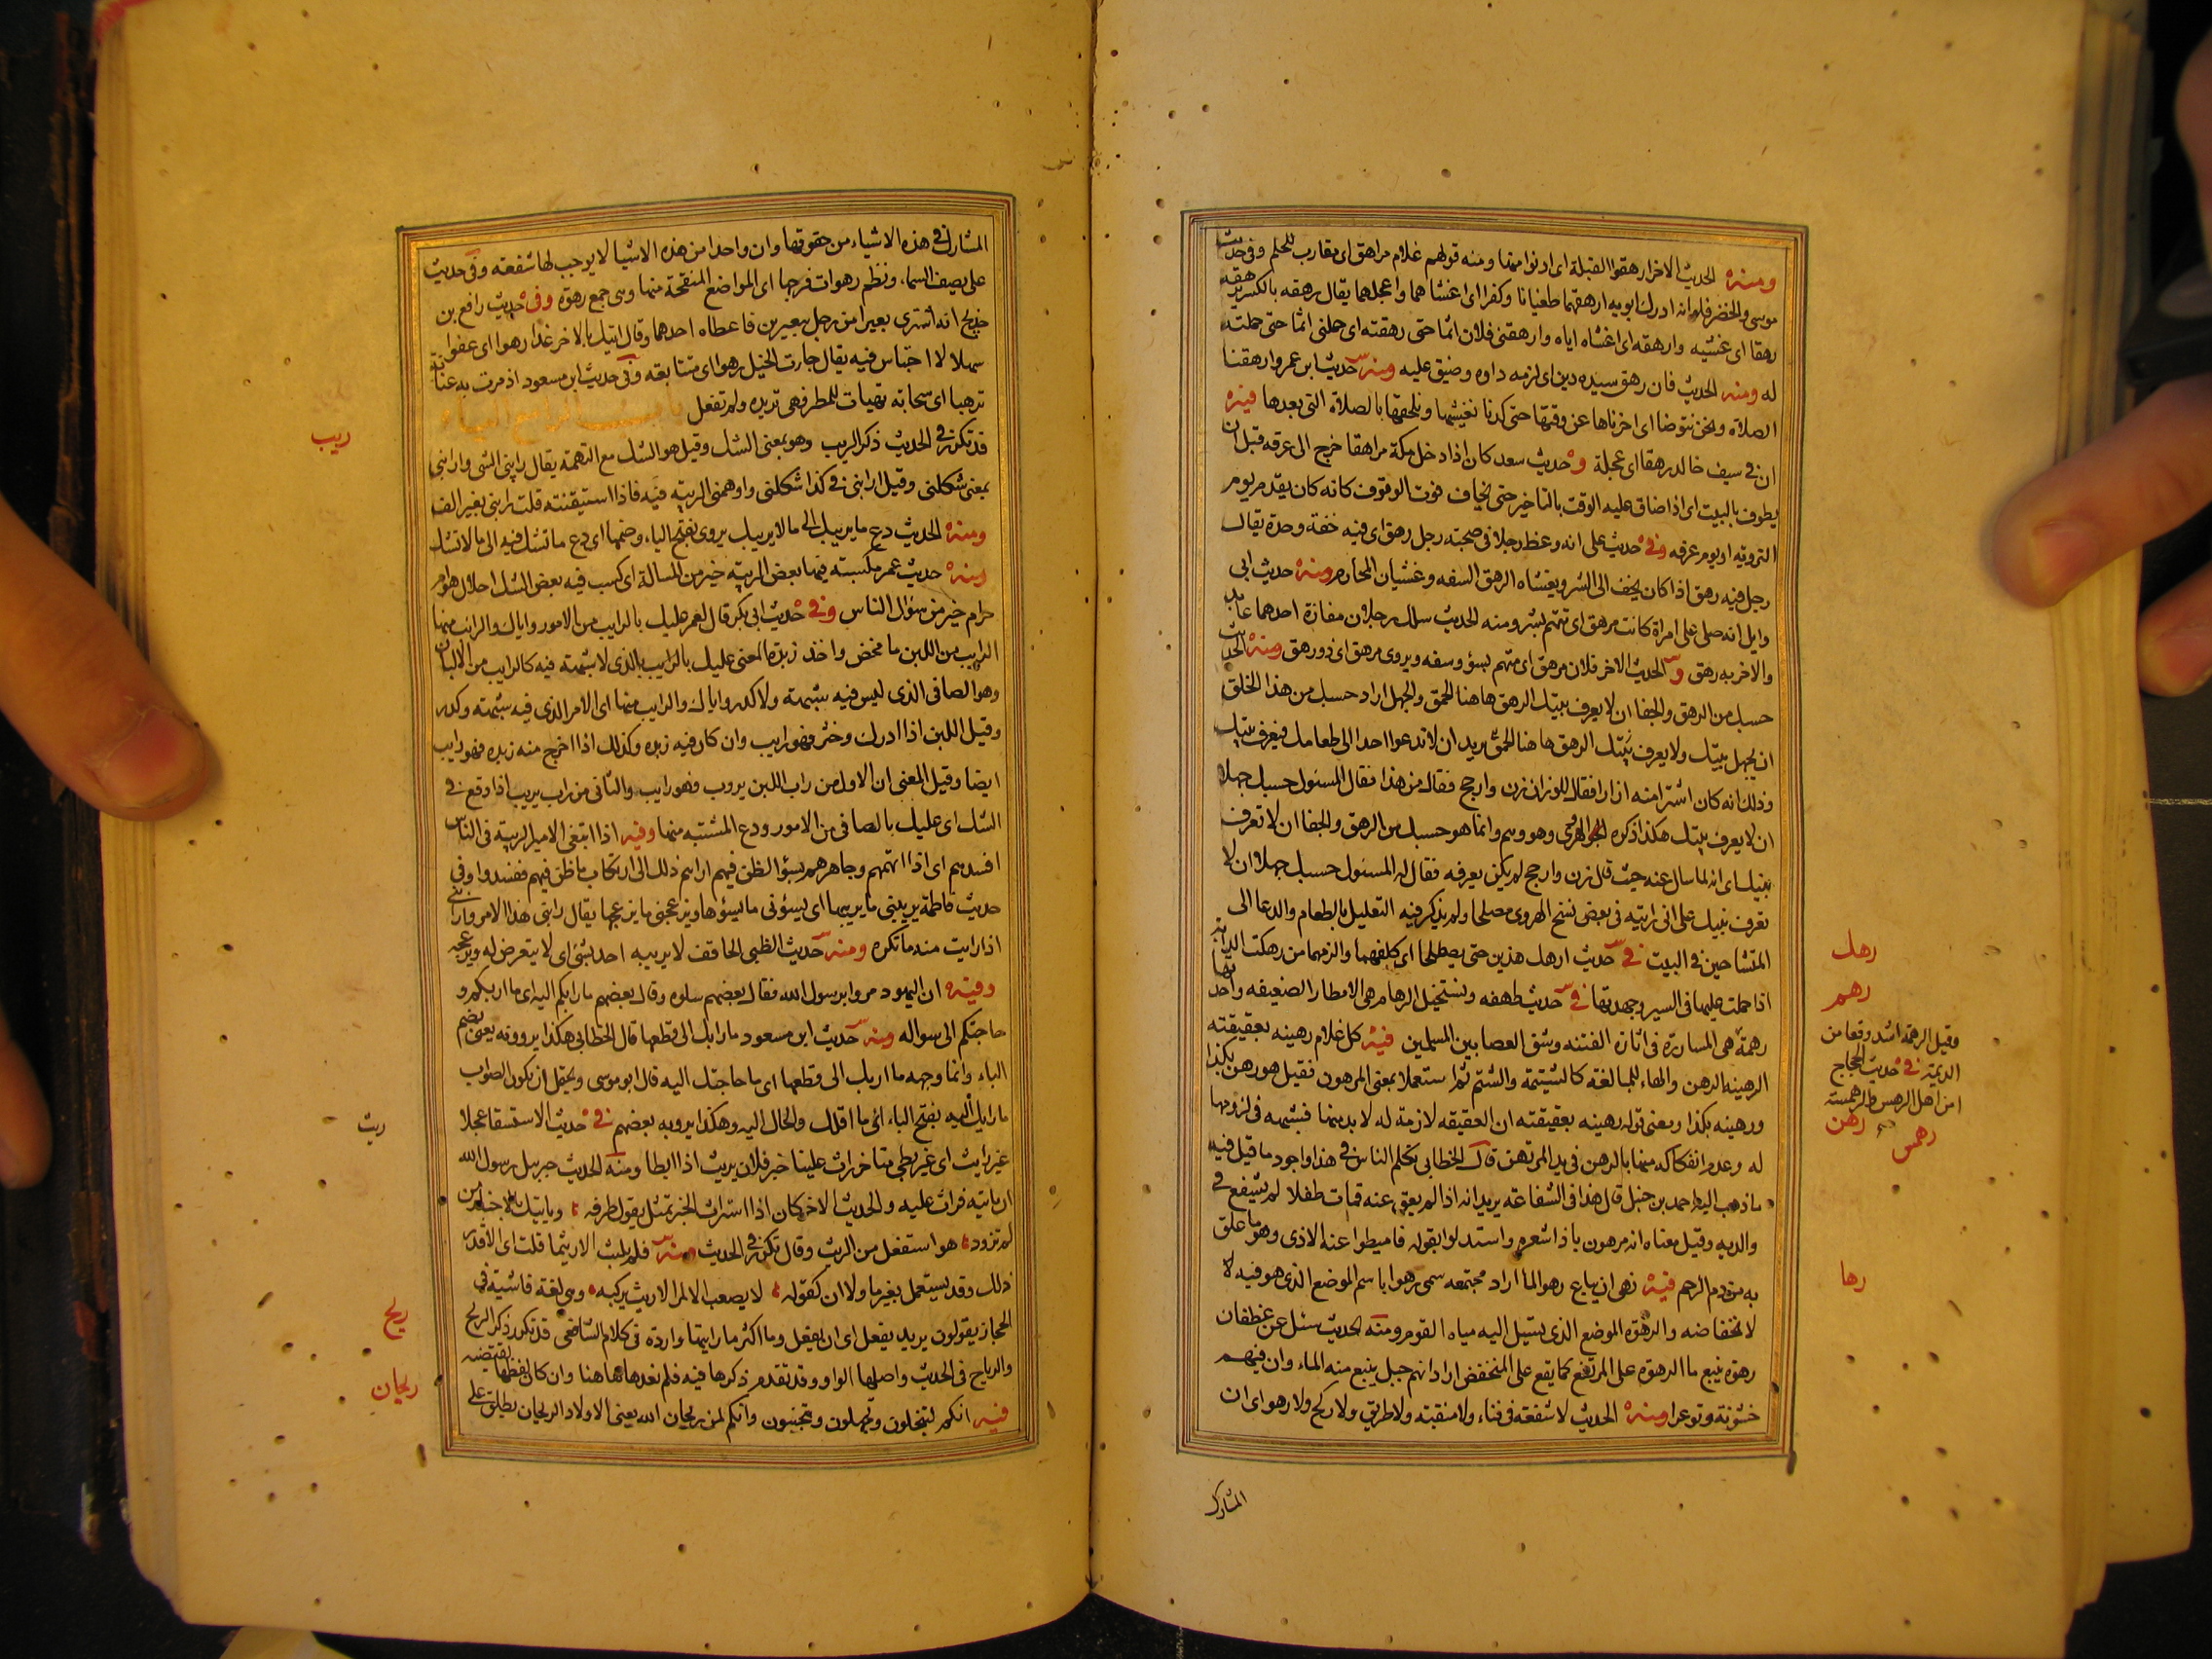 ومنه الحديث الاخر ارهقوا القبلة اى ادنوا منها ومنه قولهم غلام مراهق اى مقارب للحلم وفى حديث
موسى والخضر فلو انه ادرك ابويه ارهقهما طغيانا وكفرا اى اغشاهما واعجلهما يقال رهقه بالكسر يرهقه
رهقا اى غشيه وارهقه اى اغشاه اياه وارهقنى فلان اثما حتى رهقته اى حملنى اثما حتى حملته
له ومنه الحديث فان رهق سيده دين اى لزمه داوه وضيق عليه ومنه حديث ابن عمر وارهقنا
الصلاة ونحن نتوضا اى اخرناها عن وقتها حتى كدنا نغشيها ونلحقها بالصلاة التى بعدها فيه
ان فى سيف خالد رهقا اى عجلة و حديث سعد كان اذا دخل مكة مراهقا خرج الى عرفه قبل ان
يطوف بالبيت اى اذا ضاق عليه الوقت بالتاخير حتى يخاف فوت الوقوف كانه كان يقدم يوم
الترويه او يوم عرفه وفى حديث على انه وعظ رجلا فى صحبته رجل رهق اى فيه خفة وحدة يقال
رجل فيه رهق اذا كان يخف الى الشر ويغشاه الرهق السفه وغشيان المحارم ومنه حديث ابى
وايل انه صلى على امراة كانت مرهق اى تتهم بشر ومنه الحديث سلك رجلان مفازة احدهما عابد
والاخر به رهق و الحديث الاخر فلان مرهق اى متهم بسؤ وسفه ويروى مرهق اى ذو رهق ومنه الحديث
حسبك من الرهق والجفا ان لا يعرف بيتك الرهق هاهنا الحمق والجهل اراد حسبك من هذا الخلق
ان يجهل بيتك ولا يعرف بيتك الرهق هاهنا الحمق يريد ان لا تدعوا احدا الى طعامك فيعرف بيتك
وذلك انه كان اشترا منه ازارا فقال للوزان زن وارجح فقال من هذا فقال المسئول حسبك جهلا
ان لا يعرف بيتك هكذا ذكره الهروى وهو وهم وانما هو حسبك من الرهق والجفا ان لا تعرف
نبيك اى انه لما سال عنه حيث قال زن وارجح لم يكن يعرفه فقال له المسئول حسبك جهلا ان لا
تعرف نبيك على انى رايته فى بعض نسخ الهروى مصلحا ولم يذكر فيه التعليل بالطعام والدعا الى
المتشاحنين فى البيت فى حديث ارهك هذين حتى يصطلحا اى كلفهما والزمهما من رهكت الدابة
اذا حملت عليها فى السير وجهدتها فى حديث طهفه ونستخيل الرهام هى الامطار الضعيفه واحدتها
رهمة هى المسارة فى اثارة الفتنه وشق العصا بين المسلمين فيه كل غلام رهينه بعقيقته
الرهينه الرهن والهاء للمبالغه كالشتيمة والشتم ثم استعملا بمعنى المرهون فقيل هو رهن بكذا
ورهينه بكذا ومعنى قوله رهينه بعقيقته ان العقيقه لازمة له لا بد منها فشبهه فى لزومها
له وعدم انفكاكه منها بالرهن فى يد المرتهن قال الخطابى تكلم الناس فى هذا واجود ما قيل فيه
ما ذهب اليه احمد بن حنبل قال هذا فى الشفاعه يريد انه اذا لم يعق عنه فمات طفلا لم يشفع فى
والديه وقيل معناه انه مرهون باذا شعره واستدلوا بقوله فاميطوا عنه الاذى وهو ما علق
به من دم الرحم فيه نهى ان يباع رهو الما اراد مجتمعه سمى رهوا باسم الموضع الذى هو فيه لا
لانخفاضه والرهوة الموضع الذى يسيل اليه مياه القوم ومنه الحديث سئل عن غطفان
رهوة ينبع ما الرهوة على المرتفع كما يقع على المنخفض اراد انهم جبل ينبع منه الماء وان فيهم
خشونة وتوعرا ومنه الحديث لا شفعة فى فناء ولا منقبة ولا طريق ولا ركح ولا رهو اى ان
المشارك
رهك
رهم
وقيل الرهمة اشد وقعا من
الديمة فى حديث الحجاج
امن اهل الرس والرهمسة
رهمس
رهن
رها
المشارك فى هذه الاشياء من حقوقها وان واحدا من هذه الاشيا لا يوجب لها شفعته وفى حديث
على يصف السماء ونظم رهوات فرجها اى المواضع المنفتحة منها وهى جمع رهوة وفى حديث رافع بن
خديج انه اشترى بعيرا من رجل ببعيرين فاعطاه احدهما وقال اتيك بالاخر غدا رهوا اى عفوا
سهلا لا احتباس فيه يقال جاءت الخيل رهوا اى متتابعه وفى حديث ابن مسعود اذ مرت به عنانة
ترهيا اى سحابة تهيات للمطر فهى تريده ولم تفعل باب الراء مع الياء
قد تكرر فى الحديث ذكر الريب وهو بمعنى الشك وقيل هو الشك مع التهمة يقال رابنى الشى وارابنى
بمعنى شككنى وقيل ارابنى فى كذا شككنى واوهمنى الريبه فيه فاذا استيقنته قلت رابنى بغير الف
ومنه الحديث دع ما يريبك الى ما لا يريبك يروى بفتح الياء وضمها اى دع ما تشك فيه الى ما لا تشك
ومنه حديث عمر مكسبه فيها بعض الريبه خير من المسالة اى كسب فيه بعض الشك احلال هو ام
حرام خير من سؤال الناس وفى حديث ابى بكر قال لعمر عليك بالرايب من الامور واياك والرايب منها
الرايب من اللبن ما مخض واخذ زبده المعنى عليك بالرايب بالذى لا شبهته فيه كالرايب من الالبان
وهو الصافى الذى ليس فيه شبهته ولا كدر واياك والرايب منها اى الامر الذى فيه شبهته وكدر
وقيل اللبن اذا ادرك وخثر فهو رايب وان كان فيه زبده وكذلك اذا اخرج منه زبده فهو رايب
ايضا وقيل المعنى ان الاول من راب اللبن يروب فهو رايب والثانى من راب يريب اذا وقع فى
الشك اى عليك بالصافى من الامور ودع المشتبه منها وفيه اذا ابتغى الامير الريبة فى الناس
افسدهم اى اذا اتهمهم وجاهرهم بسؤ الظن فيهم اداهم ذلك الى ارتكاب ما ظن فيهم ففسدوا وفى
حديث فاطمة يريبنى ما يريبها اى يسؤنى ما يسؤها ويزعجنى ما يزعجها يقال رابنى هذا الامر وارابنى
اذا رايت منه ما تكره ومنه حديث الظبى الحاقف لا يريبه احد بشئ اى لا يتعرض له ويزعجه
وفيه ان اليهود مروا برسول الله فقال بعضهم سلوه وقال بعضهم ما رابكم اليه اى ما اربكم و
حاجتكم الى سواله ومنه حديث ابن مسعود ما رابك الى قطعها قال الخطابى هكذا يروونه يعنى بضم
الباء وانما وجهه ما اربك الى قطعها اى ما حاجتك اليه قال ابو موسى ويحتمل ان يكون الصواب
ما رابك اليه بفتح الباء اى ما اقلقك والجاك اليه وهكذا يرويه بعضهم فى حديث الاستسقا عجلا
غير رايث اى غير بطى متاخر راث علينا خبر فلان يريث اذا ابطا ومنه الحديث جبريل رسول الله
ان ياتيه فراث عليه والحديث الاخر كان اذا استراث الخبر تمثل بقول طرفه وياتيك بالاخبار من
لم تزود هو استفعل من الريث وقال تكرر فى الحديث ومنه فلم يلبث الا ريثما قلت اى الا قدر
ذلك وقد يستعمل بغير ما ولا ان كقوله لا يصعب الامر الا ريث يركبه وهى لغة فاشية فى
الحجاز يقولون يريد يفعل اى ان يفعل وما اكثر ما رايتها واردة فى كلام الشافعى قد تكرر ذكر الريح
والرياح فى الحديث واصلها الواو وقد تقدم ذكرها فيه فلم نعدها هاهنا وان كان لفظها يقتضيه
فيه انكم لتبخلون وتجهلون وتجبنون وانكم لمن ريحان الله يعنى الاولاد الريحان يطلق على
ريب
ريث
ريح
ريحان